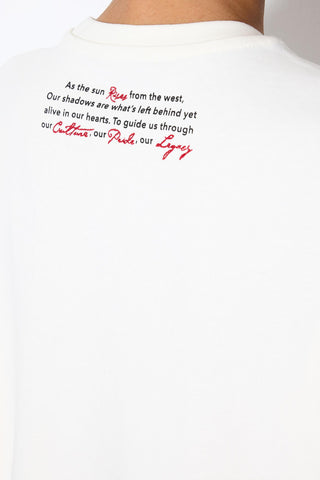 As the sun Rises from the west,
Our shadows are what's left behind yet
alive in our hearts. To guide us through
our Culture, our Pride, our Legacy